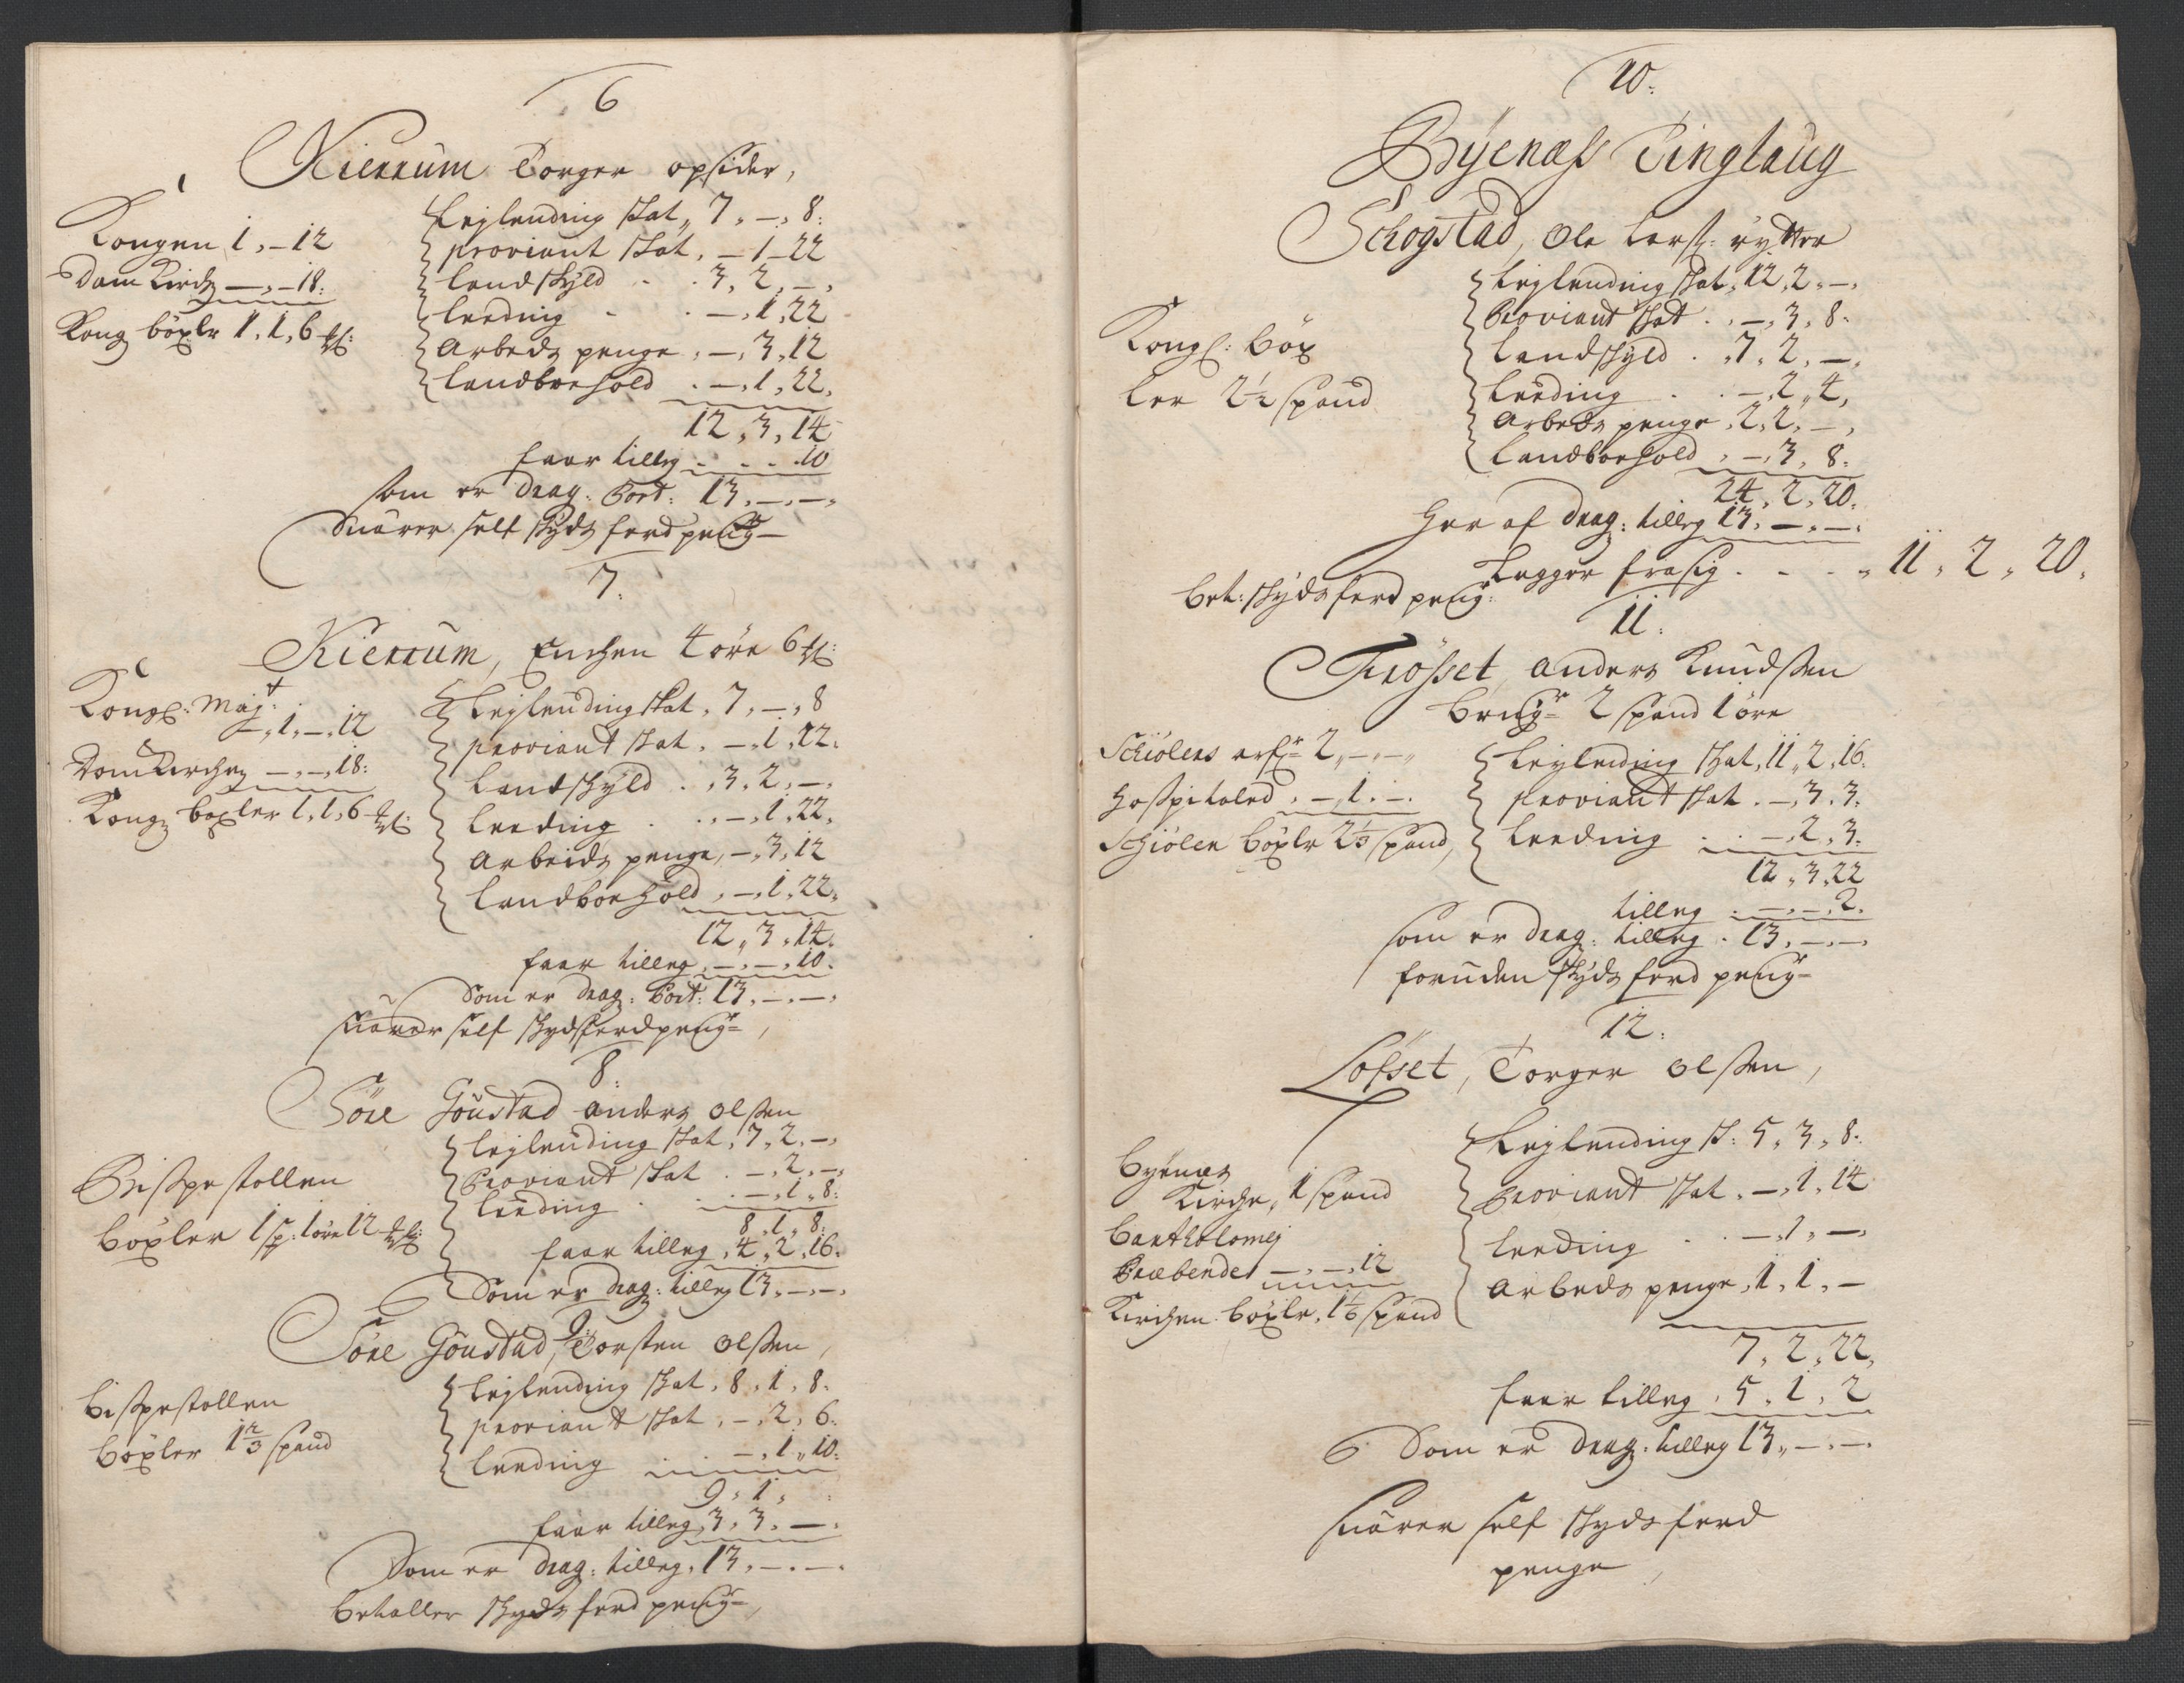 6
Kierrum Torger opsider,
Kongen 1,–12
Dom Kirch –,–18:
Kong böxler 1,1,6
Leylending skat, 7,–,8:
proviant skat, –1–22
landskyld . . 3, 2,–,
leeding . . –,1,22
Arbeds penge, –,3,12
landboehold . –,1,22,
12, 3, 14
faar tilleg . . . 10
som er drag: Port: 13,–,–,
Suarer self skyds ferd peng
7.
Kierrum, Enchen 4 öre 6
Kongl: Maj:t
–,1,–,12
Dom Kirchen –,–,18:
Kong böxler 1,1,6
Leylending skat, 7,–,8
proviant skat, –,1,22:
Landskyld . , 3, 2,–,
leeding . . . –,1,22,
Arbeids penge, –,3,12
landboehold, –,1,22,
12, 3, 14.
faar tilleg, –,–,10.
Som er drag: Port: 13,–,–,
suarer self skydsferd peng,
8.
Söre Göustad anders olsen
Bispestollen
böxler 1 sp: 1 öre 12
leylending skat, 7, 2,–,
Proviant skat . –,2,–,
leeding . . . –,1,8:
8, 1, 8:
faar tilleg, 4, 2, 16.
Som er drag: tilleg 13,–,–,
9.
Söre Göustad, Torsten olsen,
bispestollen
böxler 1 2/3 spand
Leylending skat, 8, 1, 8.
proviant skat, –, 2, 6.
leeding . . –, 1, 10.
9, 1, .
faar tilleg, 3, 3, –.
Som er drag: tilleg, 13,–.–.
betaller skyds ferd peng,
10.
Byenæss Tinglaug
Schogstad, Ole Lars: rytter
Kongl: böx
ler 2 1/2 spand
Leylending skat, 12, 2,–,
Proviant skat . , –, 3, 8.
Landskyld . , 7, 2, –,
leeding . . –, 2, 4,
Arbeds penge, 2, 2, –,
Landboehold, –, 3, 8.
24, 2, 20.
Her af drag: tilleg 13,–,–.
Legger fra sig . . . , 11, 2, 20,
bet: skyds ferd peng:
11.
Frösset, anders Knudsen
brug 2 spand 1 öre
Schiölers arf 2,–,–,
Hospitaled, –,1,–.
Schiöler böxler 2 1/3 spand,
Leylending skat, 11, 2, 16.
proviant skat . –, 3, 3.
leeding . . –, 2, 3.
12, 3, 22
tilleg . –,–, 2.
som er drag: tilleg . 13,–,–,
foruden skyds ferd peng
12.
Lofset, Torger olsen,
byenæs
Kirche, 1 spand
Bartholomej
Præbende, –,–,12
Kirchen böxler, 1 1/6 spand
Leylending s: 5, 3, 8.
Proviant skat, –, 1, 14
leeding . . –, 1, –,
Arbeds penge, 1, 1, –
7, 2, 22,
faar tilleg, 5, 1, 2
Som er drag: tilleg 13,–,–.
suarer self skyds ferd
penge,